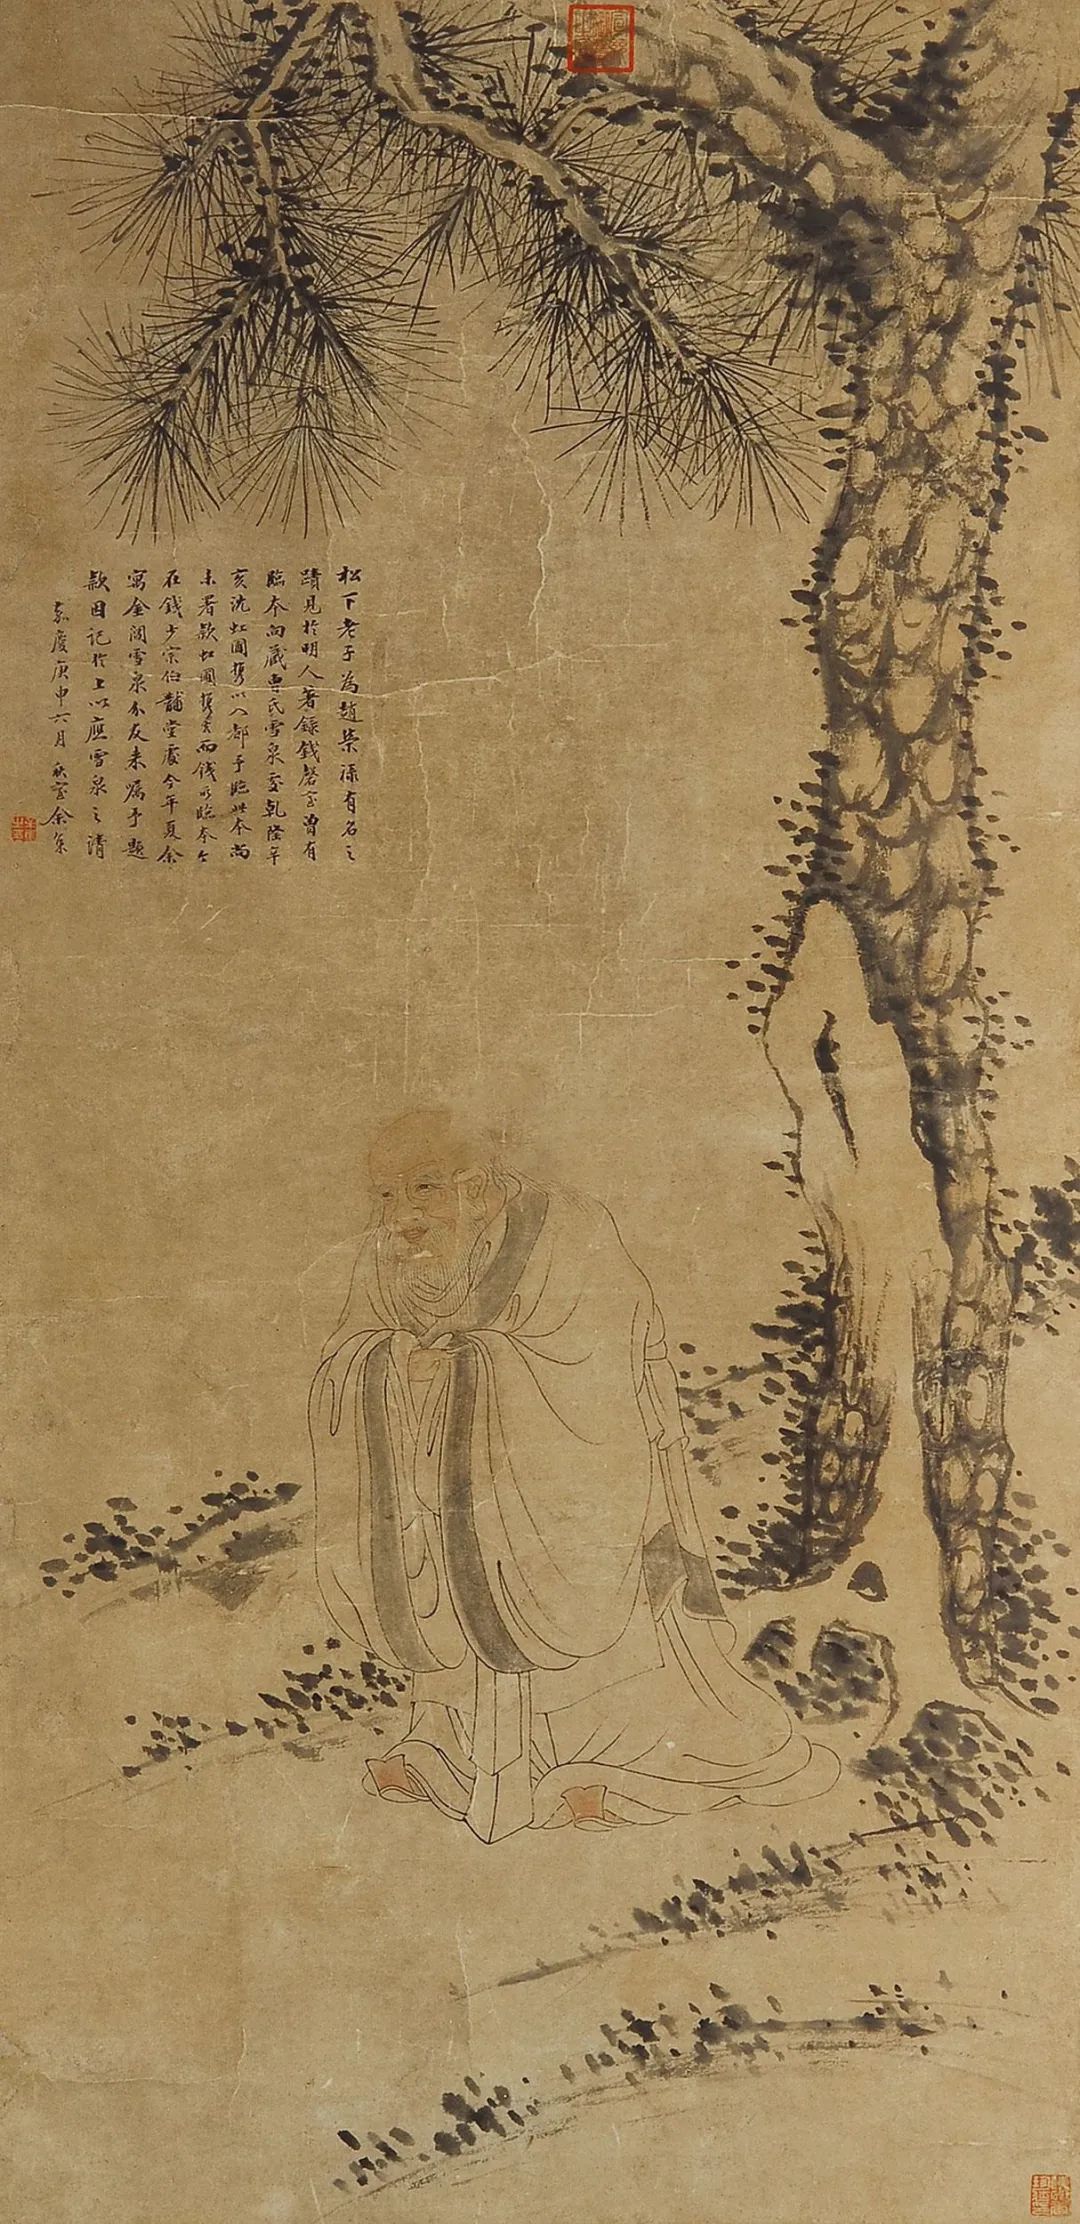 松下老子為趙榮祿有名之
蹟見於明人著錄錢磬室曾有
臨本向藏曹氏雪泉交乾隆辛
亥沈虹圃攜以入都予臨此本尚
未署款虹圃攜去而錢氏臨本今
在錢少宗伯黼堂處今年夏余
寓金閶雪泉介友來屬予題
款因記於上以應雪泉之請
嘉慶庚申六月 秋室余集